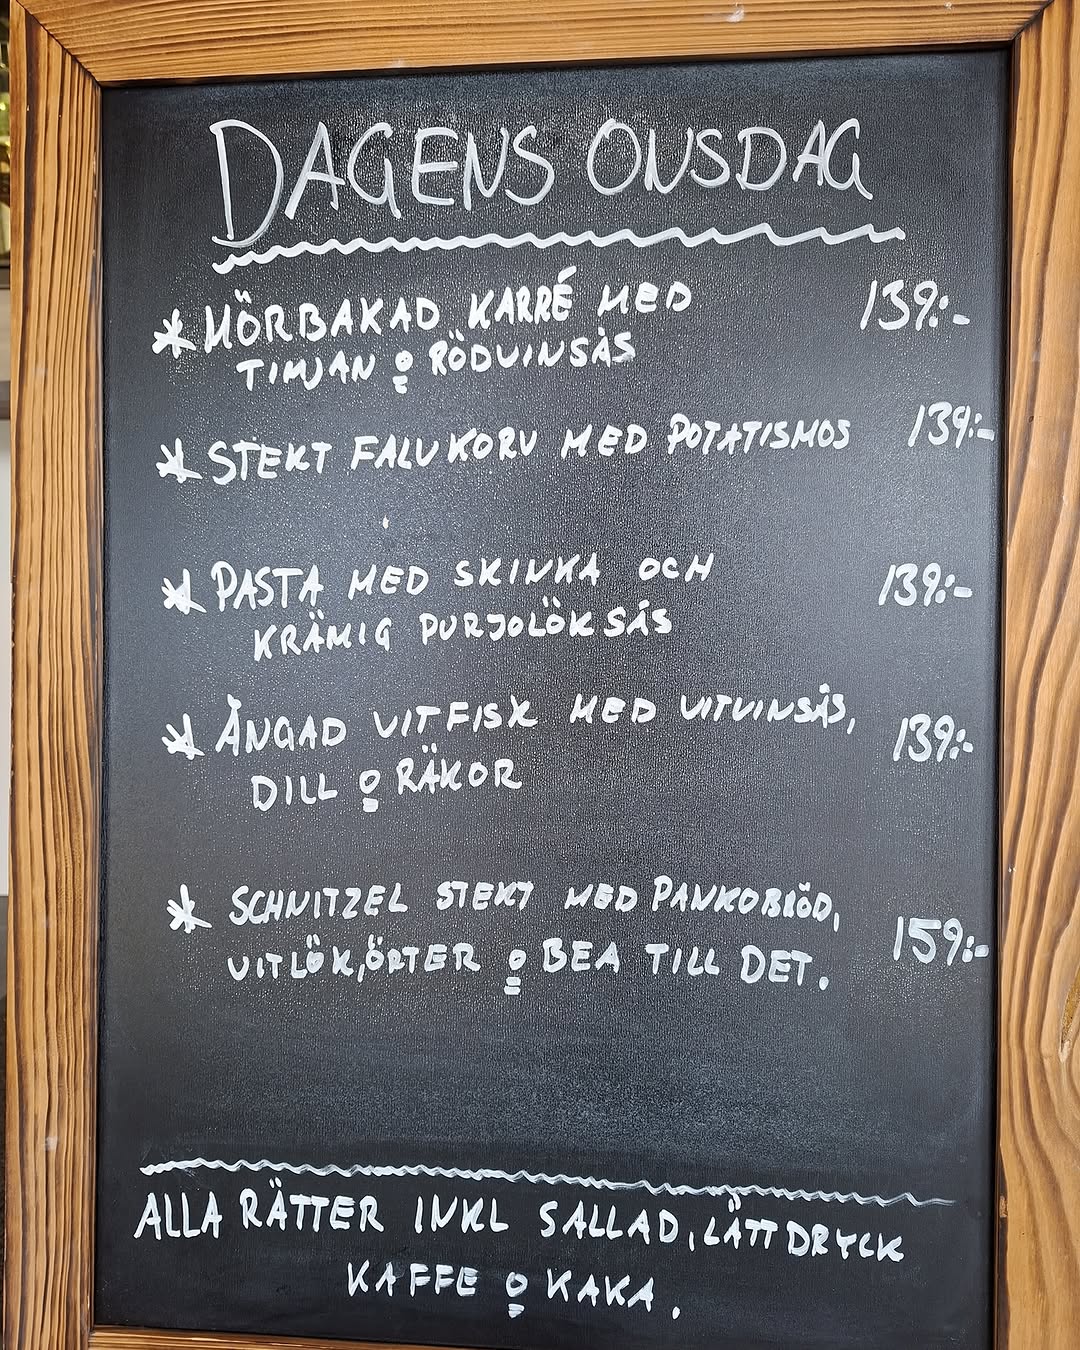 DAGENS ONSDAG
* MÖRBAKAD KARRÉ MED 139:-
TIMJAN o RÖDVINSÅS
* STEKT FALUKORV MED POTATISMOS 139:-
* PASTA MED SKINKA OCH 139:-
KRÄMIG PURJOLÖKSÅS
* ÅNGAD VITFISK MED VITVINSÅS, 139:-
DILL o RÄKOR
* SCHNITZEL STEKT MED PANKOBRÖD, 159:-
VITLÖK,ÖRTER o BEA TILL DET.
ALLA RÄTTER INKL SALLAD, LÄTTDRYCK
KAFFE o KAKA.